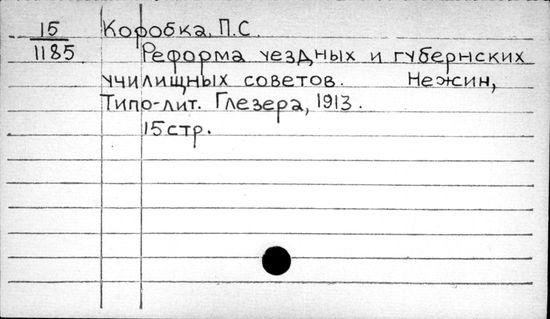 15 Коробка, П.С.
1185 Реформа уездных и губернских
училищных советов. Нежин,
Типо-лит. Глезера, 1913.
15 стр.